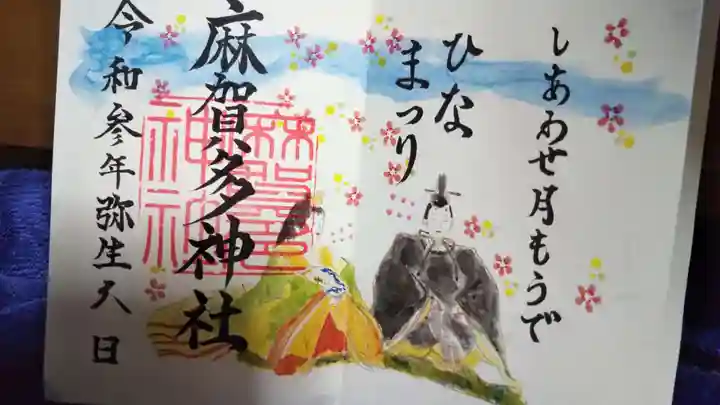 しあわせ月もうで
ひな
まつり
麻賀多神社
麻賀多
神社
令和参年弥生大日